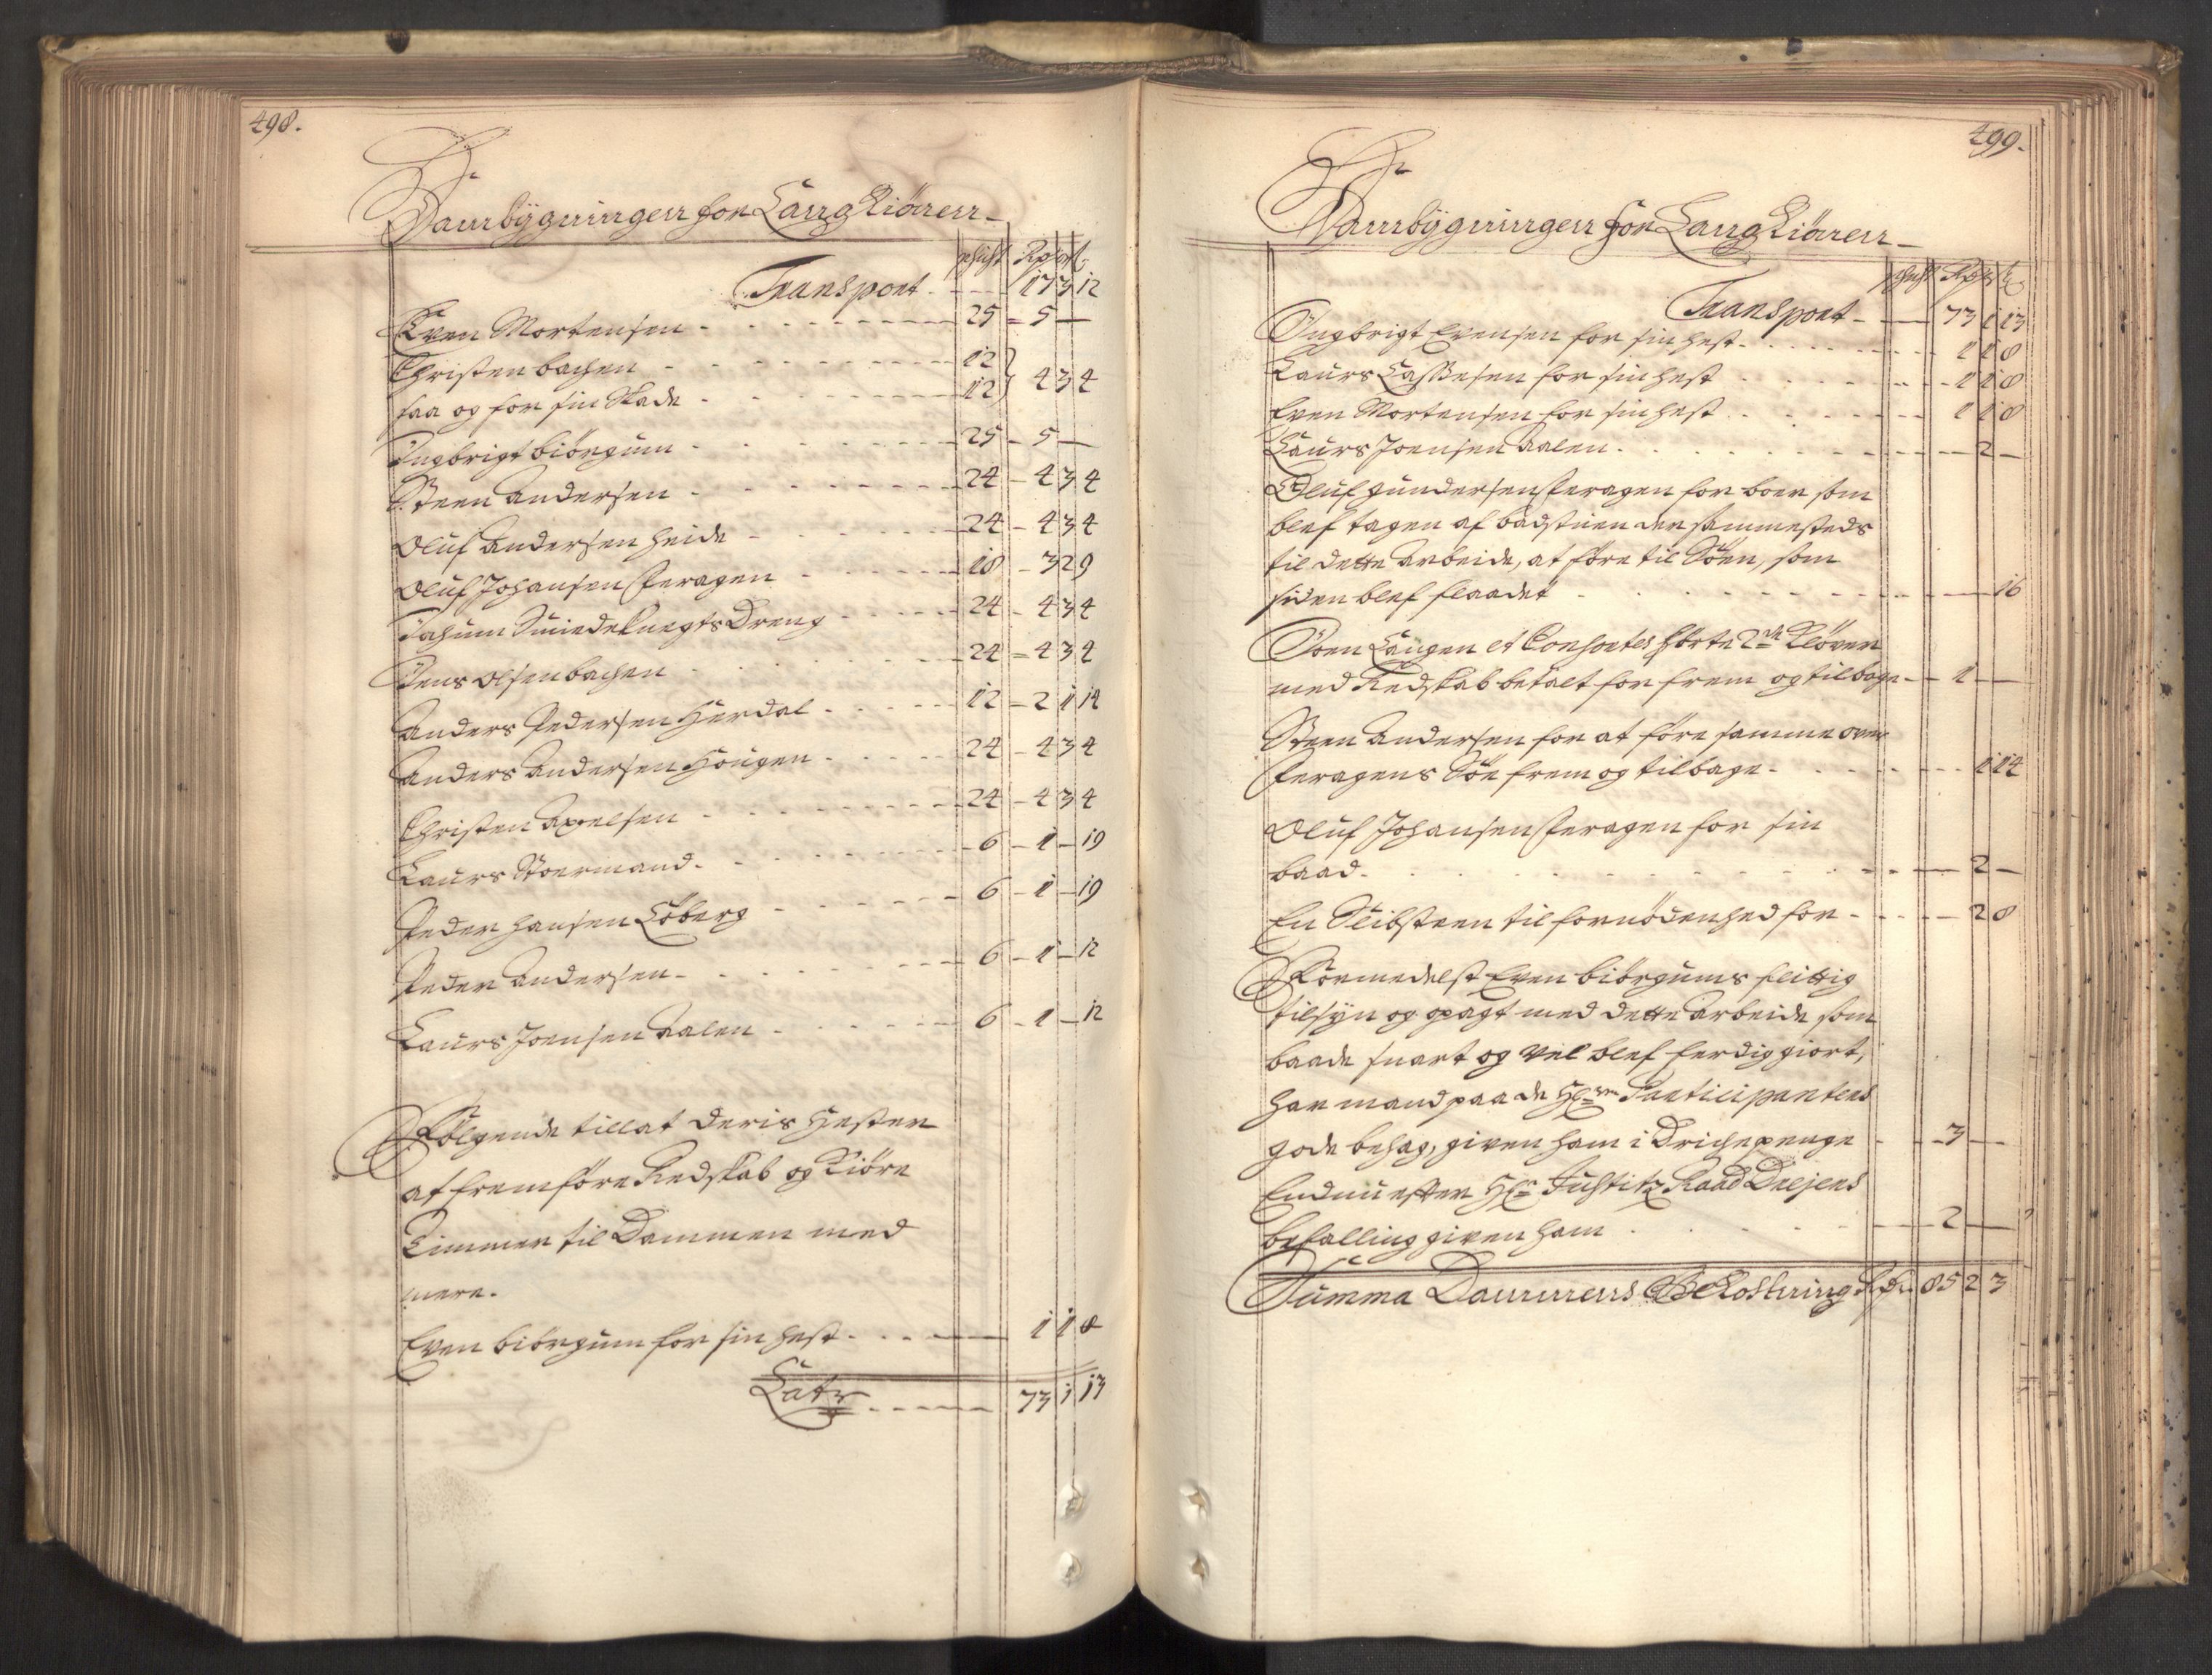 498.
Dambygningen for Lang Kiönen
schicht Rdr ort ß
Transport - - - 17 3 12
Even Mortensen - - - 25 - 5 -
Christen bachen - - - 12
saa og for sin Skade - - - 12 } 4 3 4
Ingbrigt biörgum - - - 25 - 5 -
Steen Andersen - - - 24 - 4 3 4
Oluf Andersen Heide - - - 24 - 4 3 4
Oluf Johansen Feragen - - - 18 - 3 2 9
Jochum Smedeknegts Dreng - - - 24 - 4 3 4
Jens Olsen bachen - - - 24 - 4 3 4
Anders Pedersen Herdal - - - 12 - 2 1 14
Anders Andersen Hougen - - - 24 - 4 3 4
Christen Axelsen - - - 24 - 4 3 4
Laurs Stoermand - - - 6 - 1 - 19
Peder Hansen Löberg - - - 6 - 1 - 19
Peder Andersen - - - 6 - 1 - 12
Laurs Joensen Aalen - - - 6 - 1 - 12
Fölgende tillat deris Hester
at fremföre Redskab og Kiöre
Timmer til Dammen med
mere.
Even biörgum for sin hest - - - 1 1 8
Latr - - - 73 1 13
499.
Dambygningen for Lang Kiönen
schicht Rdr ort ß
Transport - - 73 1 13
Ingbrigt Evensen for sin hest - - - 1 1 8
Laurs Lassesen for sin hest - - - 1 1 8
Even Mortensen for sin hest - - - 1 1 8
Laurs Joensen Aalen - - - 2 -
Oluf Gundersen Feragen for boer som
blef tagen af badstuen der sammesteds
til dette Arbeide, at före til Söen, som
siden blef flaadet - - - 16
Joen Langen et Consortes förte 2de Klöver
med Redskab betalt for frem og tilbage - - 1 -
Steen Andersen for at före samme over
Feragens Söe frem og tilbage - - - 1 14
Oluf Johansen Feragen for sin
baad - - - 2 -
En Slibsteen til fornödenhed for - - - 2 8
Formedelst Even biörgums flittig
tilsyn og opagt med dette Arbeide som
baade snart og vel blef ferdig giort,
har mand paa de Hr. Participanters
gode behag, given ham i Drichepenge - - 3 -
Endnu efter Hr. Justitz Raad Drejers
befalling given ham - - - 2 -
Summa Dammens Bekostning Rdr. 85 2 3